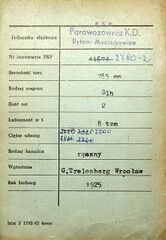 P K P
Jednostka służbowa Parowozownia K.D.
Bytom Maciejkowice
Nr inwentarza PKP 2780-2
Szerokość toru 785 mm
Rodzaj wagonu
Ilość osi 2
Ładowność w t 8 ton
Ciężar własny 2700
Rodzaj hamulca ręczny
Wytwórnia G.Trelenberg Wrocław
Rok budowy 1925